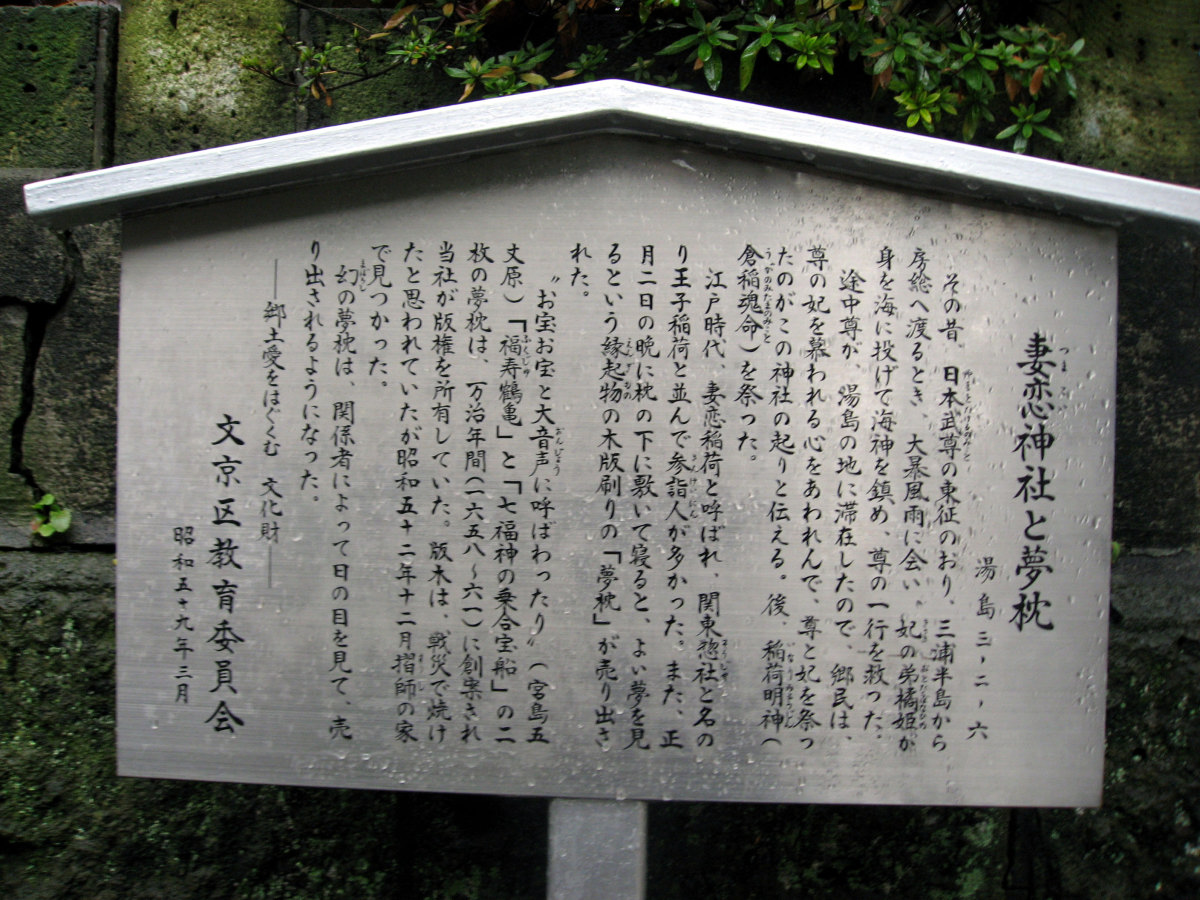 妻恋神社と夢枕
湯島三ノ二ノ六
その昔、日本武尊の東征のおり、三浦半島から
房総へ渡るとき、大暴風雨に会い、妃の弟橘姫が
身を海に投げて海神を鎮め、尊の一行を救った。
途中尊が、湯島の地に滞在したので、郷民は、
尊の妃を慕われる心をあわれんで、尊と妃を祭っ
たのがこの神社の起りと伝える。後、稲荷明神(
倉稲魂命)を祭った。
江戸時代、妻恋稲荷と呼ばれ、関東惣社と名の
り王子稲荷と並んで参詣人が多かった。また、正
月二日の晩に枕の下に敷いて寝ると、よい夢を見
るという縁起物の木版刷りの「夢枕」が売り出さ
れた。
〝お宝お宝と大音声に呼ばわったり〟(宮島五
丈原)「福寿鶴亀」と「七福神の乗合宝船」の二
枚の夢枕は、万治年間(一六五八〜六一)に創案され
当社が版権を所有していた。版木は、戦災で焼け
たと思われていたが昭和五十二年十二月摺師の家
で見つかった。
幻の夢枕は、関係者によって日の目を見て、売
り出されるようになった。
――郷土愛をはぐくむ 文化財――
文京区教育委員会
昭和五十九年三月